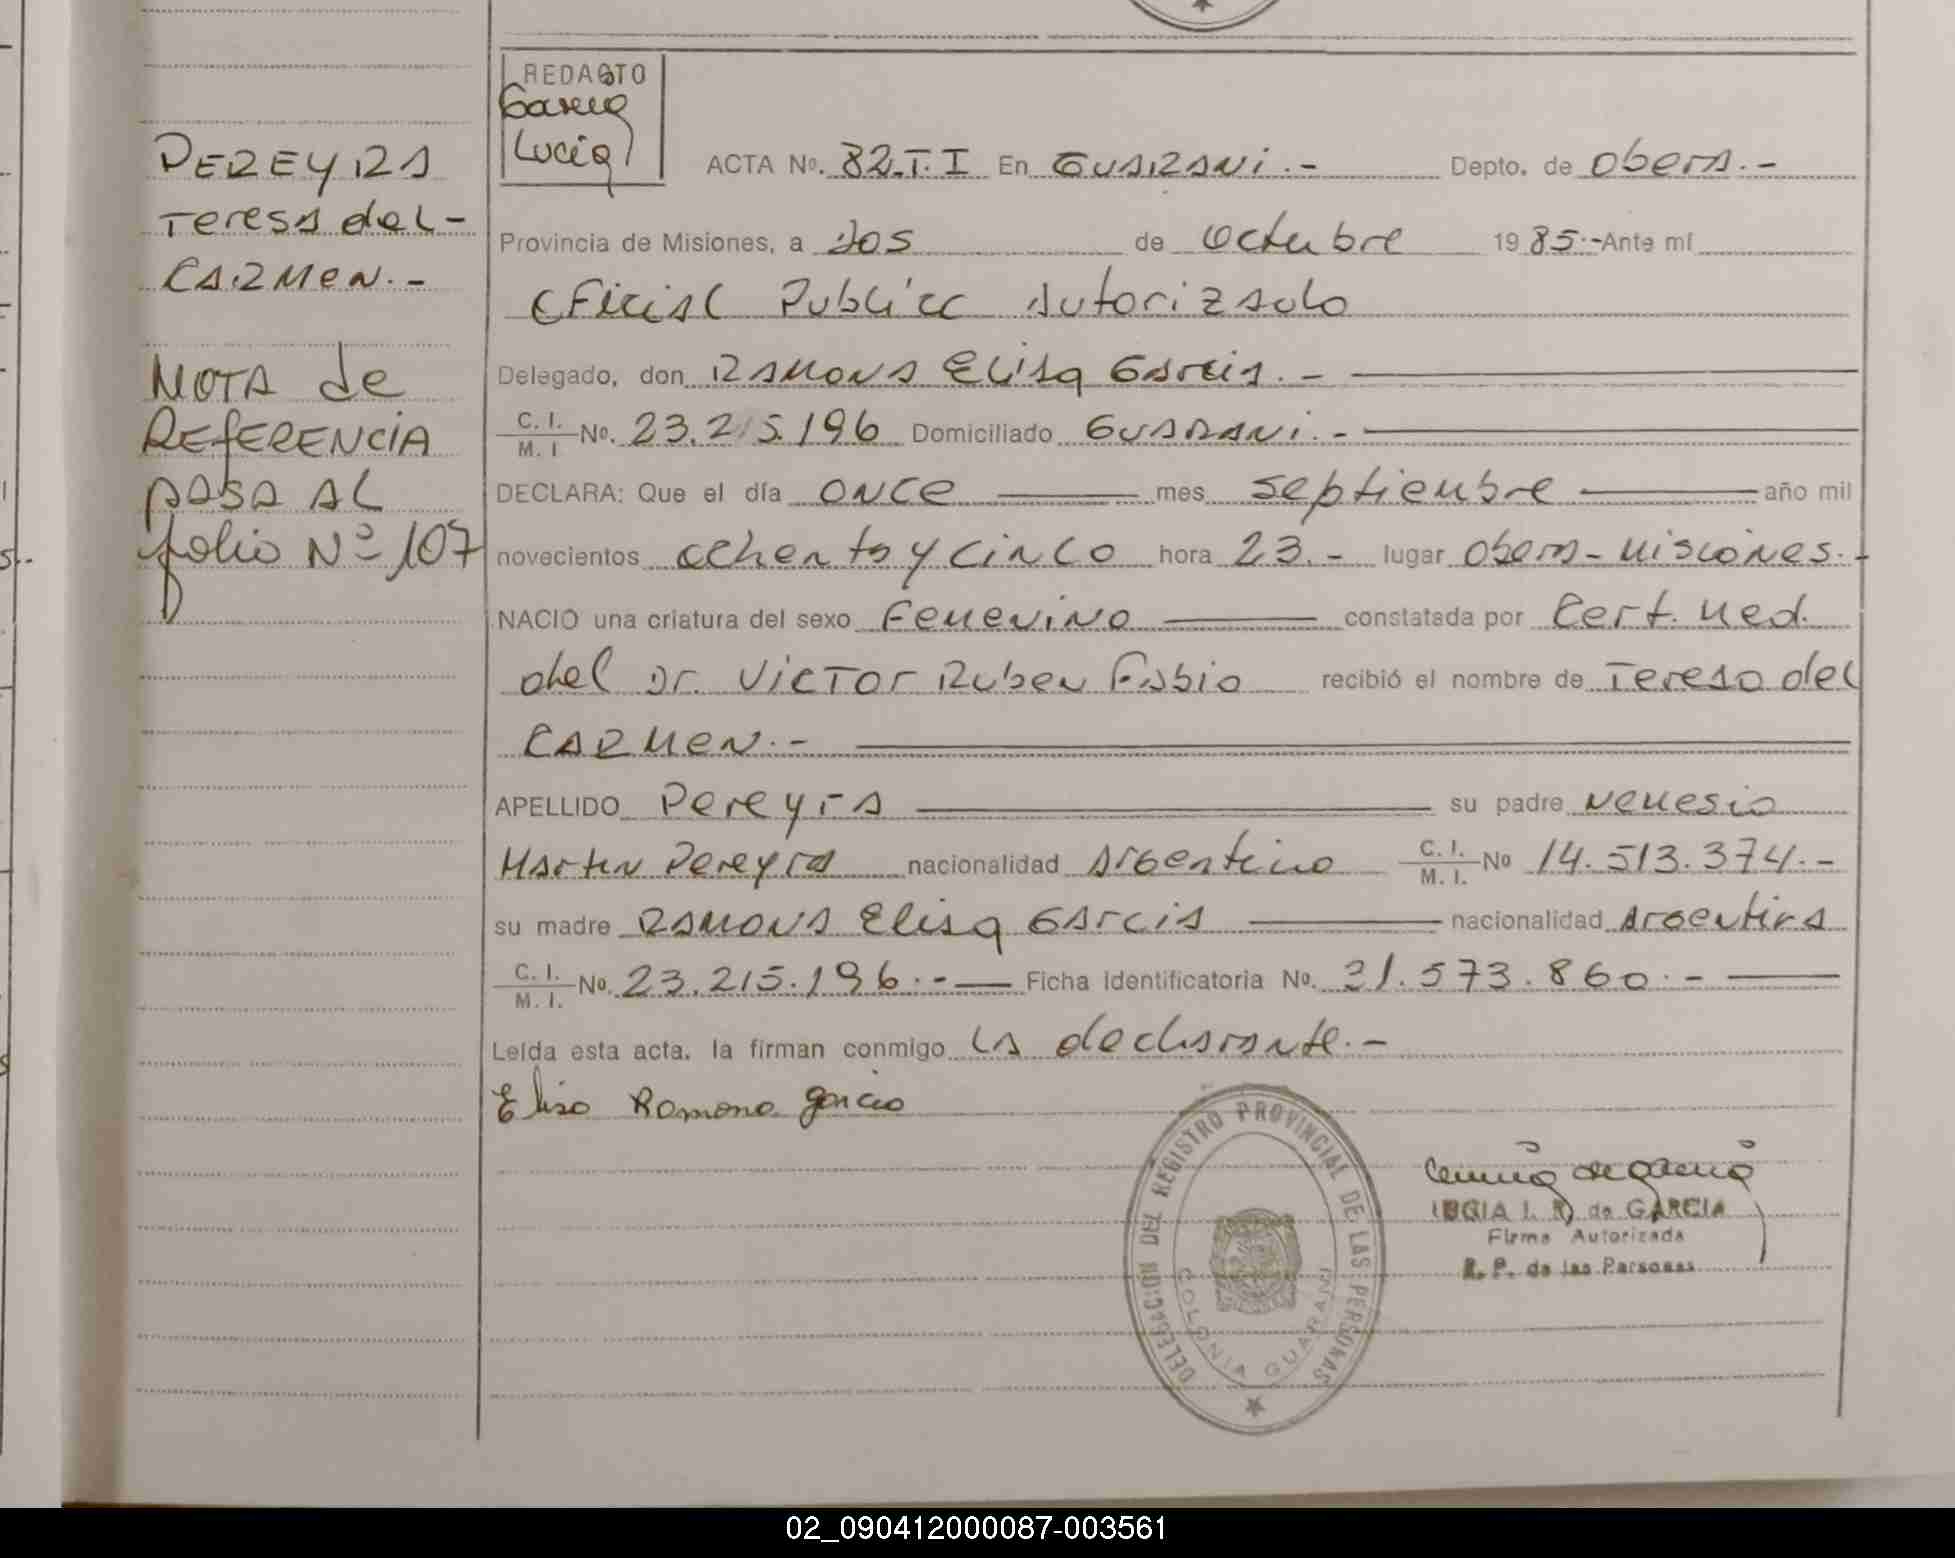 PEREYRA
Teresa del-
CARMEN.-
NOTA de
REFERENCIA
PASA AL
folio Nº 107
REDACTO
Garcia
Lucia
ACTA Nº. 82.T.I En GUARANi.- Depto. de Obera.-
Provincia de Misiones, a dos de Octubre 1985.-Ante mí
Oficial Público Autorizado
Delegado, don RAMONA Elisa Garcia.-
C. I. / M. I. Nº. 23.215.196 Domiciliado GUARANi.-
DECLARA: Que el día once mes septiembre año mil
novecientos ochenta y cinco hora 23.- lugar Obera-Misiones.-
NACIO una criatura del sexo Femenino constatada por Cert. Med.
del Dr. Victor Ruben Fabio recibió el nombre de Teresa del
CARMEN.-
APELLIDO Pereyra su padre Nemesio
Martin Pereyra nacionalidad Argentino C. I. / M. I. Nº 14.513.374.-
su madre RAMONA Elisa Garcia nacionalidad Argentina
C. I. / M. I. Nº. 23.215.196.- Ficha Identificatoria Nº. 31.573.860.-
Leída esta acta, la firman conmigo la declarante.-
Elisa Ramona garcia
DELEGACION DEL REGISTRO PROVINCIAL DE LAS PERSONAS
COLONIA GUARANI
LUCIA I. R. de GARCIA
Firma Autorizada
R. P. de las Personas
02_090412000087-003561